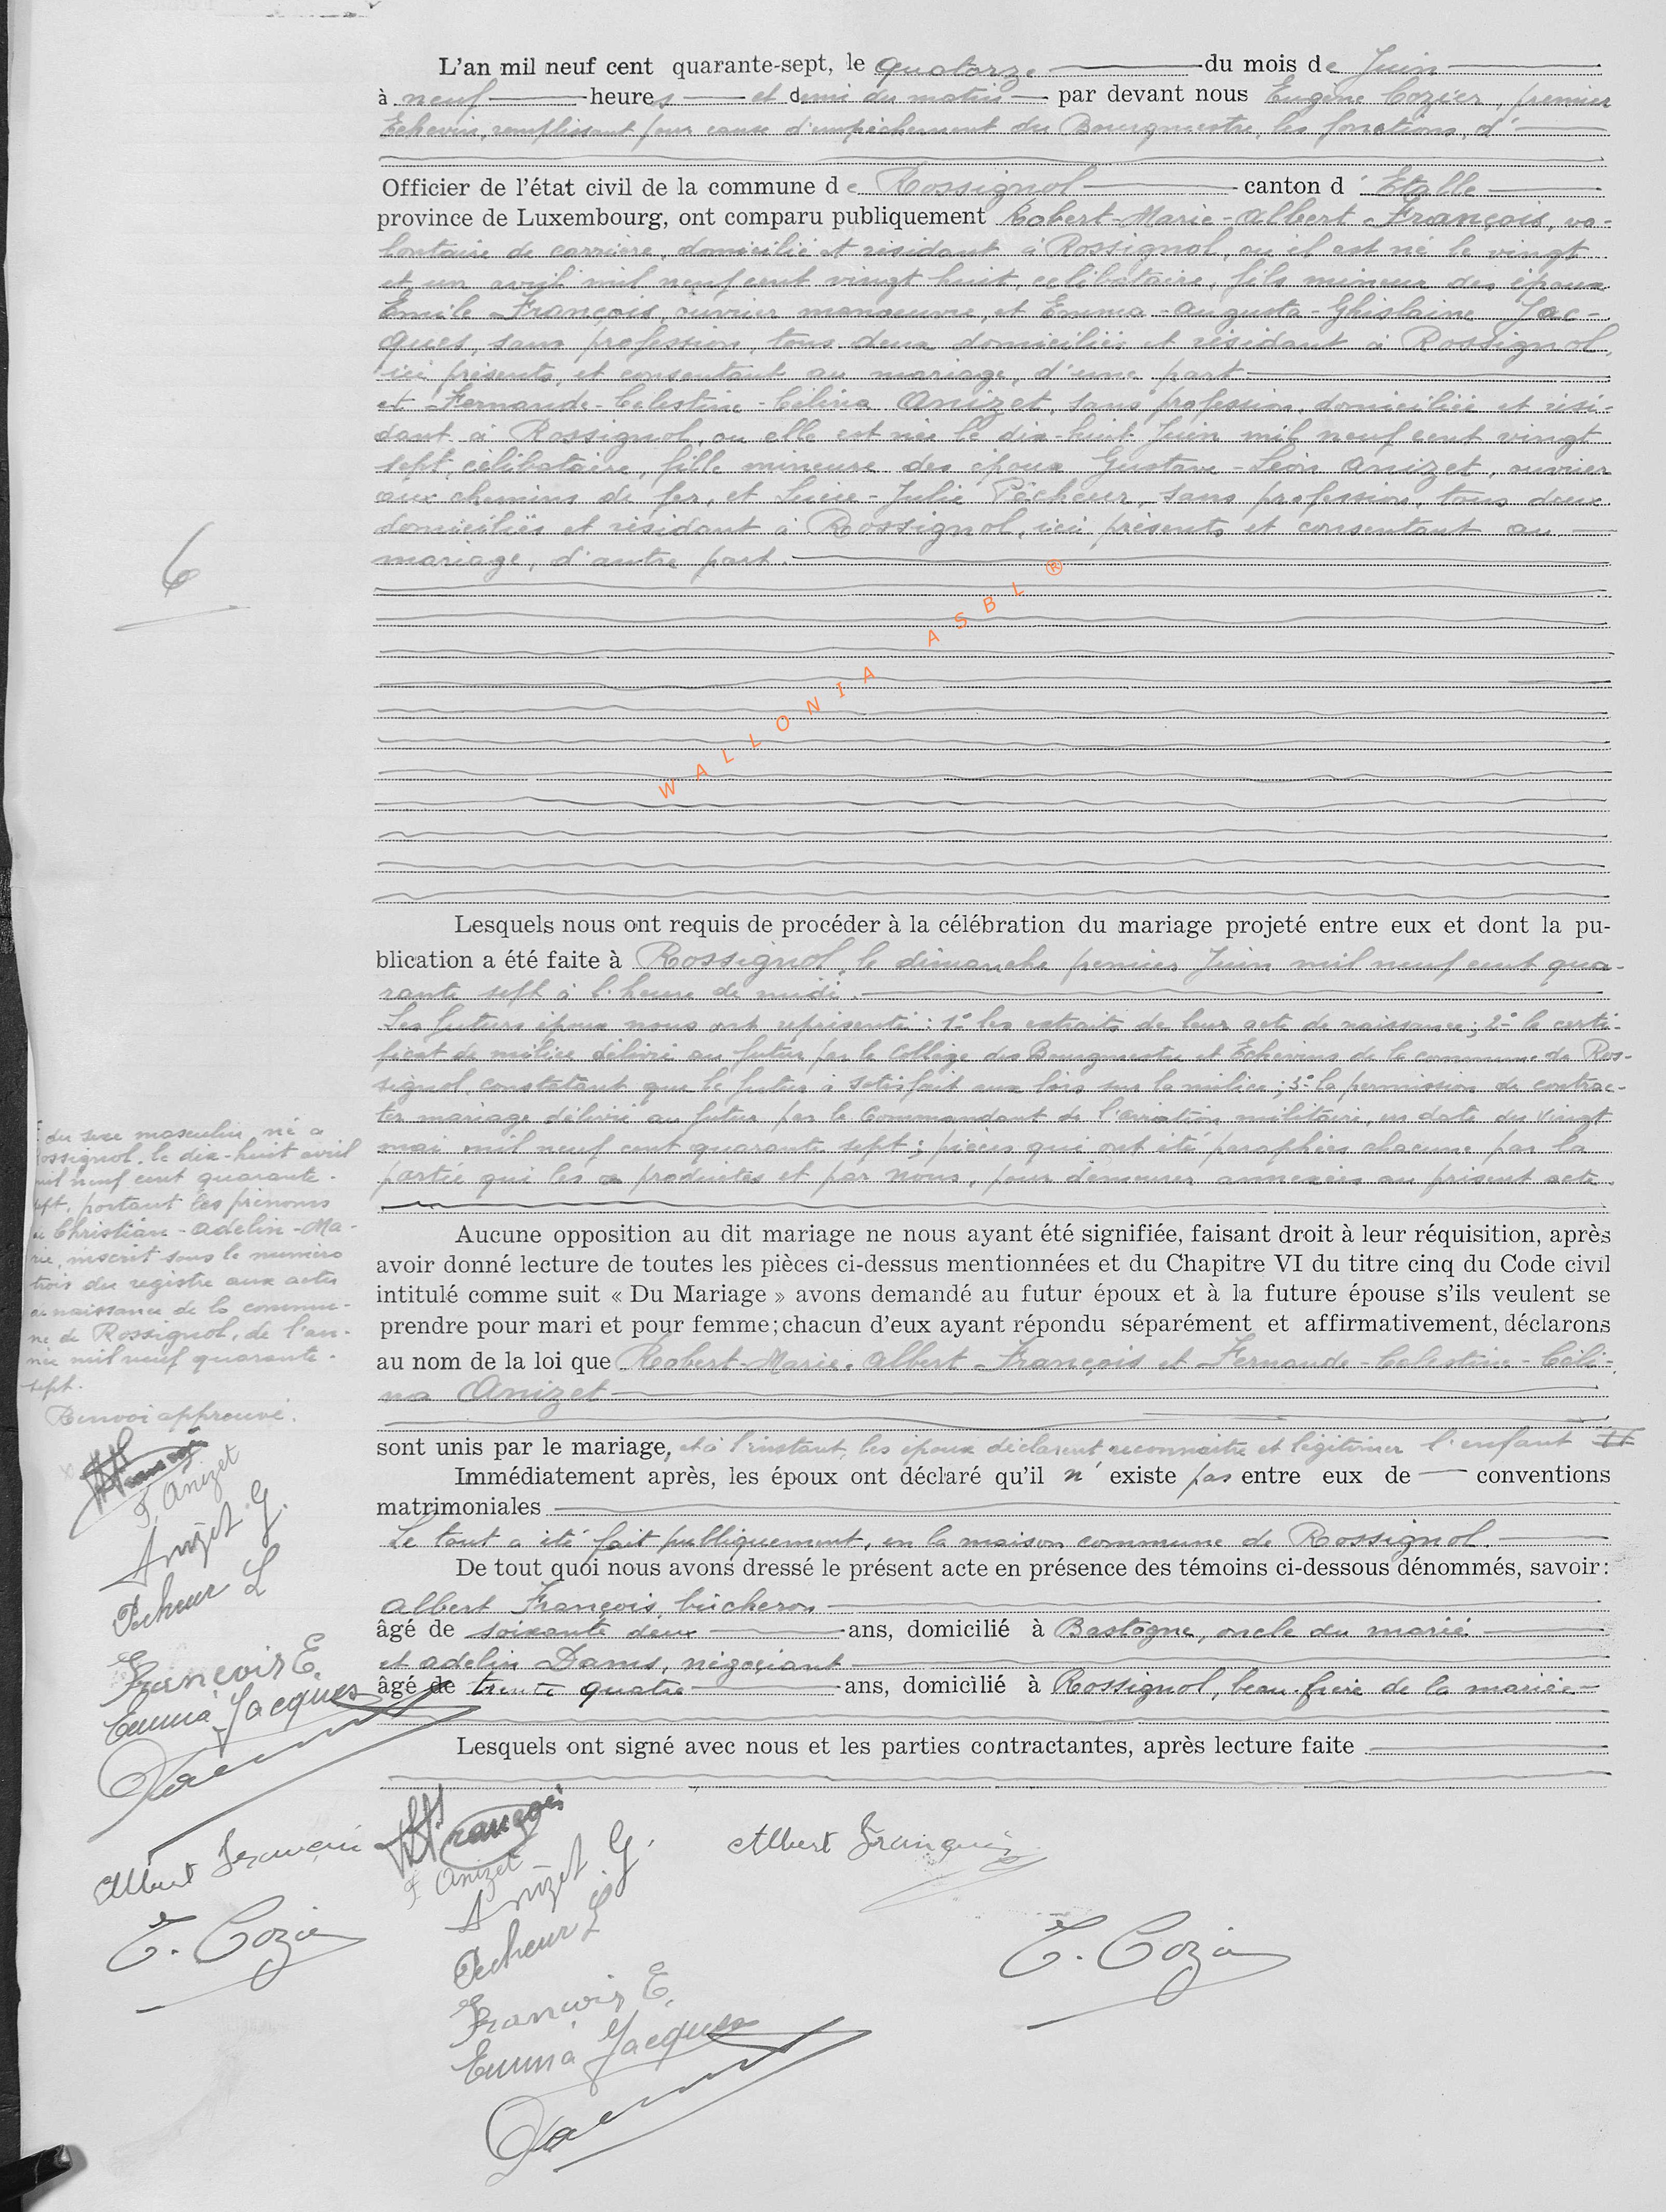 L'an mil neuf cent quarante-sept, le quatorze du mois de Juin
à neuf heures et demi du matin par devant nous Eugène Cozier, premier
Echevin, remplissant pour cause d'empêchement du Bourgmestre, les fonctions, d'
Officier de l'état civil de la commune de Rossignol canton d'Etalle
province de Luxembourg, ont comparu publiquement Robert-Marie-Albert-François, vo-
lontaire de carrière, domicilié et résidant à Rossignol, où il est né le vingt
et un avril mil neuf cent vingt huit, célibataire, fils mineur des époux
Emile François, ouvrier manœuvre, et Emma-Augusta-Ghislaine Jac-
ques, sans profession, tous deux domiciliés et résidant à Rossignol,
ici présents, et consentant au mariage, d'une part
et Fernande-Celestine-Célina Anizet, sans profession, domiciliée et rési-
dant à Rossignol, ou elle est née le dix-huit Juin mil neuf cent vingt
sept, célibataire, fille mineure des époux Gustave-Léon Anizet, ouvrier
aux chemins de fer, et Lucie-Julie Pêcheur, sans profession, tous deux
domiciliés et résidant à Rossignol, ici présents et consentant au
mariage, d'autre part.
6
WALLONIA ASBL ®
Lesquels nous ont requis de procéder à la célébration du mariage projeté entre eux et dont la pu-
blication a été faite à Rossignol, le dimanche premier Juin mil neuf cent qua-
rante sept à l'heure de midi.
Les futurs époux nous ont représenté: 1° les extraits de leur acte de naissance; 2° le certi-
ficat de milice délivré au futur par le Collège des Bourgmestre et Echevins de la commune de Ros-
signol constatant que le futur à satisfait aux lois sur la milice; 3° la permission de contrac-
ter mariage délivré au futur par le Commandant de l'aviation militaire, en date du vingt
mai mil neuf cent quarante sept; pièces qui ont été paraphées chacune par la
partie qui les a produites et par nous, pour demeurer annexées au présent acte.
Aucune opposition au dit mariage ne nous ayant été signifiée, faisant droit à leur réquisition, après
avoir donné lecture de toutes les pièces ci-dessus mentionnées et du Chapitre VI du titre cinq du Code civil
intitulé comme suit « Du Mariage » avons demandé au futur époux et à la future épouse s'ils veulent se
prendre pour mari et pour femme; chacun d'eux ayant répondu séparément et affirmativement, déclarons
au nom de la loi que Robert-Marie-Albert-François et Fernande-Celestine-Céli-
na Anizet
sont unis par le mariage, et à l'instant, les époux déclarent reconnaitre et légitimer l'enfant
Immédiatement après, les époux ont déclaré qu'il n'existe pas entre eux de conventions
matrimoniales
Le tout a été fait publiquement, en la maison commune de Rossignol.
De tout quoi nous avons dressé le présent acte en présence des témoins ci-dessous dénommés, savoir:
Albert François, bûcheron
âgé de soixante deux ans, domicilié à Bastogne, oncle du marié
et Adelin Dams, négociant
âgé de trente quatre ans, domicilié à Rossignol, beau-frère de la mariée
Lesquels ont signé avec nous et les parties contractantes, après lecture faite
du sexe masculin, né a
Rossignol, le dix-huit avril
mil neuf cent quarante-
sept, portant les prénoms
de Christian-Adelin-Ma-
rie, inscrit sous le numéro
trois du registre aux actes
de naissance de la commu-
ne de Rossignol, de l'an-
née mil neuf quarante-
sept.
Renvoi approuvé.
François
F. Anizet
Anizet G.
Pecheur L
François E.
Emma Jacques
Albert François
E. Cozier
François
F Anizet
Anizet G.
Pecheur L
François E.
Emma Jacques
Albert François
E. Cozier